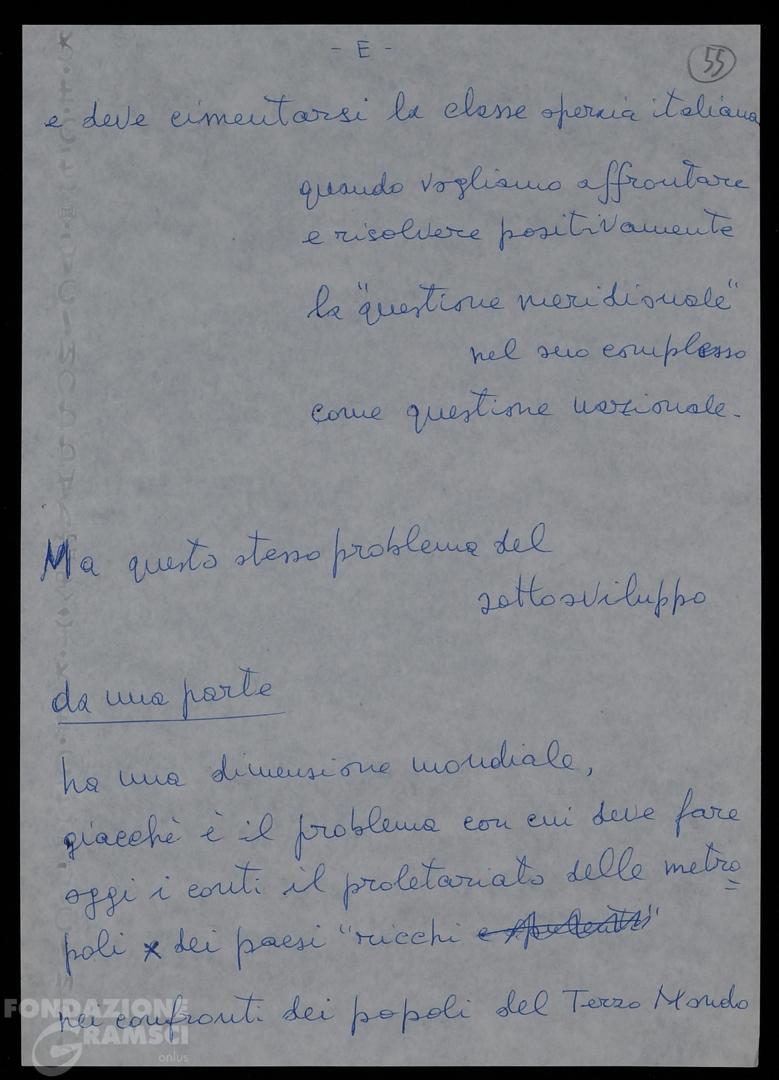 - E -
55
e deve cimentarsi la classe operaia italiana
quando vogliamo affrontare
e risolvere positivamente
la "questione meridionale"
nel suo complesso
come questione nazionale.
Ma questo stesso problema del
sottosviluppo
da una parte
ha una dimensione mondiale,
giacchè è il problema con cui deve fare
oggi i conti il proletariato delle metro
poli dei paesi "ricchi e opulenti"
nei confronti dei popoli del Terzo Mondo
FONDAZIONE
GRAMSCI
onlus